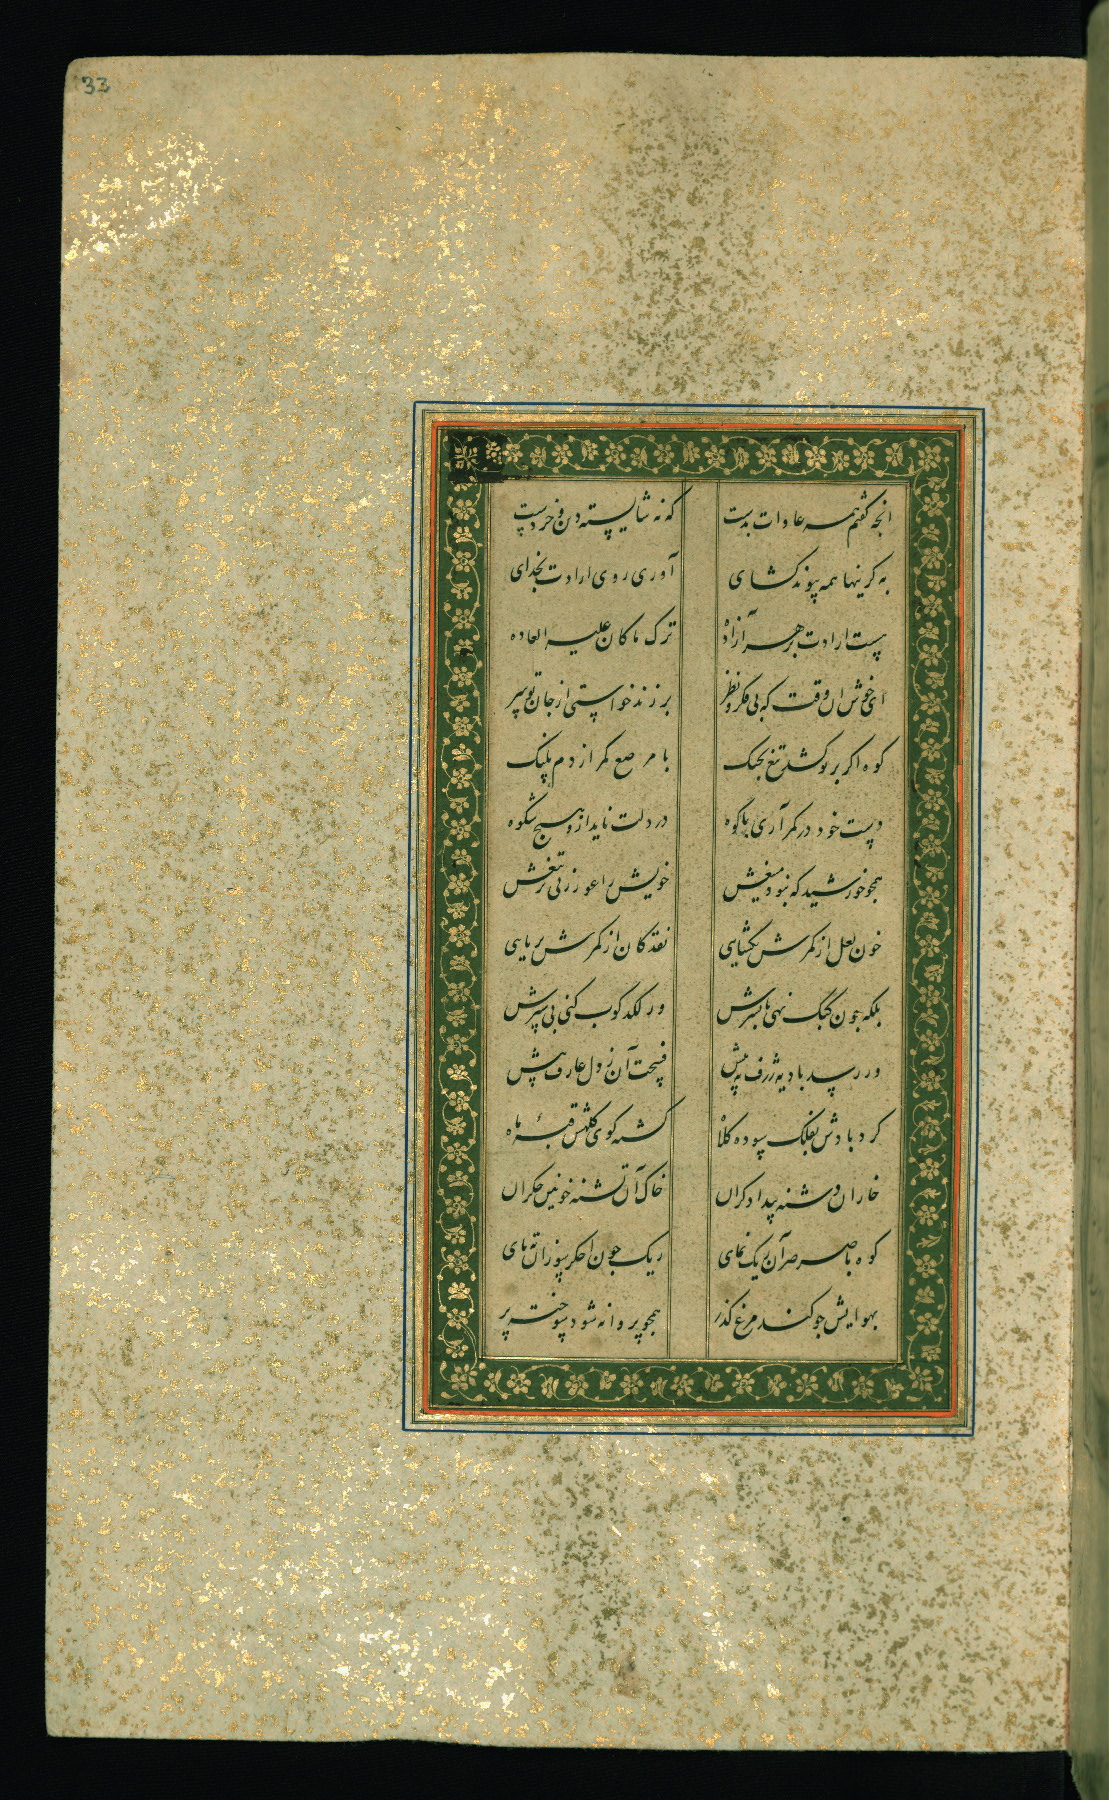 33
انچه گفتم همه عادات بدست که نه شایسته دین و خردست
به کزینها همه پیوند کشای آوری روی ارادت بخدای
هست ارادت بر هر آزاده ترک ماکان علیه العاده
ای خوش ان وقت که بی فکر و نظر بر زند خواستی از جان تو سر
کوه اکر بر تو کشد تیغ بجنک با مرصع کمر از دم پلنک
دست خود در کمر آری با کوه در دلت ناید ازو هیچ شکوه
همچو خورشید که نبود میغش خویش را عور زنی بر تیغش
خون لعل از کمرش بکشایی نقد کان از کمرش بربایی
بلکه چون کبک نهی پا بسرش ور لکدکوب کنی پی سپرش
ور رسد بادیه ژرف به پیش فسحت آن ز دل عارف بیش
کردبادش بفلک سوده کلاه کشته کوی کلهش قبه ماه
خاران دشنه بیدادکران خاک آن تشنه خونین جکران
کوه با صرصر آن ریک نمای ریک چون اخکر سوزان ته پای
بهوایش چو کند مرغ کذر همچو پروانه شود سوخته پر